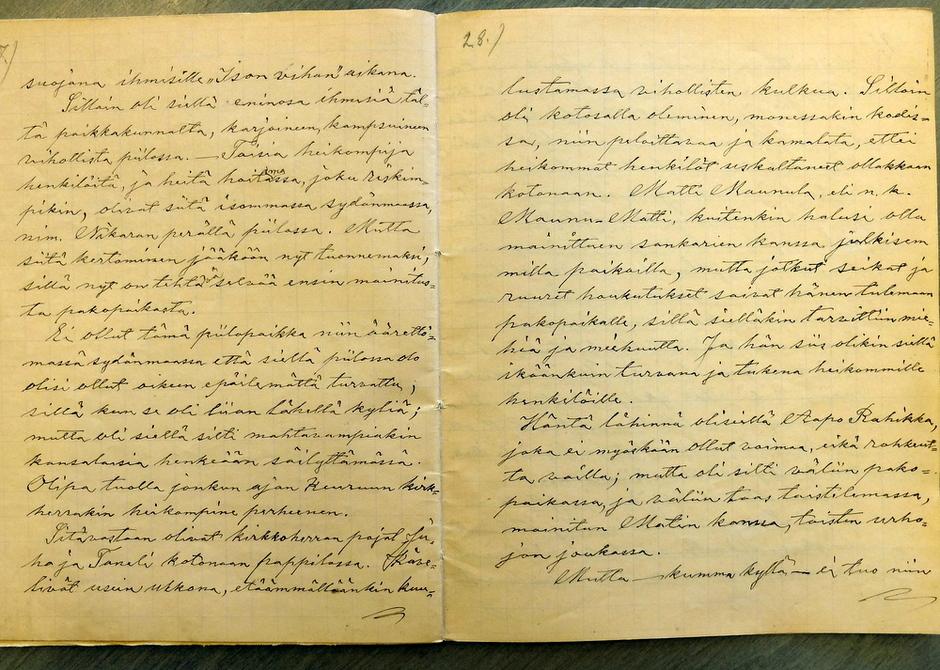 7.)
suojana ihmisille „Ison vihan” aikana.
Silloin oli siellä eninosa ihmisiä täl-
tä paikkakunnalta, karjoineen, kampsuineen
vihollista piilossa. — Toisia heikompija
henkilöitä, ja heitä hoitamassa, joku reskin-
pikin, olivat siitä isommassa sydänmaassa,
nim. Näkärän perällä piilossa. Mutta
siitä kertominen jääköön nyt tuonnemaksi,
sillä nyt on tehtä selvää ensin mainitus-
ta pakopaikasta.
Ei ollut tämä piilopaikka niin ääretto-
massa sydänmaassa että siellä piilossa olo
olisi ollut oikeen epäilemättä turvattu,
sillä kun se oli liian lähellä kyliä;
mutta oli siellä silti mahtavampiakin
kansalaisia henkeään säilyttämässä.
Olipa tuolla jonkun ajan Keuruun kirk-
herrakin heikompine perheenen.
Sitävastaan olivat kirkkoherran pojat Ju-
ha ja Taneli kotonaan pappilassa. Käve-
livät usein ulkona, etäämmälläänkin kuu-
28.)
lustamassa vihollisten kulkua. Silloin
oli kotosalla oleminen, monessakin kodis-
sa, niin peloittavaa ja kamalata, ettei
heikommat henkilöt uskaltaneet ollakkaan
kotonaan. Matti Maunula, eli n.k.
Maunu-Matti, kuitenkin halusi olla
mainittuen sankarien kanssa julkisem
milla paikoilla, mutta jotkut seikat ja
suuret houkutukset saivat hänen tulemaan
pakopaikalle, sillä sielläkin tarvittiin mie-
hiä ja miehuutta. Ja hän siis olikin siellä
ikäänkuin turvana ja tukena heikommille
henkilöille.
Häntä lähinnä oli seillä Aapo Rahikka,
joka ei myöskään ollut voimaa, eikä rohkeut-
ta vailla; mutta oli silti väliin pako-
paikassa, ja väliin taas taistelemassa,
mainitun Matin kanssa, toisten urho-
jen joukassa.
Mutta — kumma kyllä — ei tuo niin